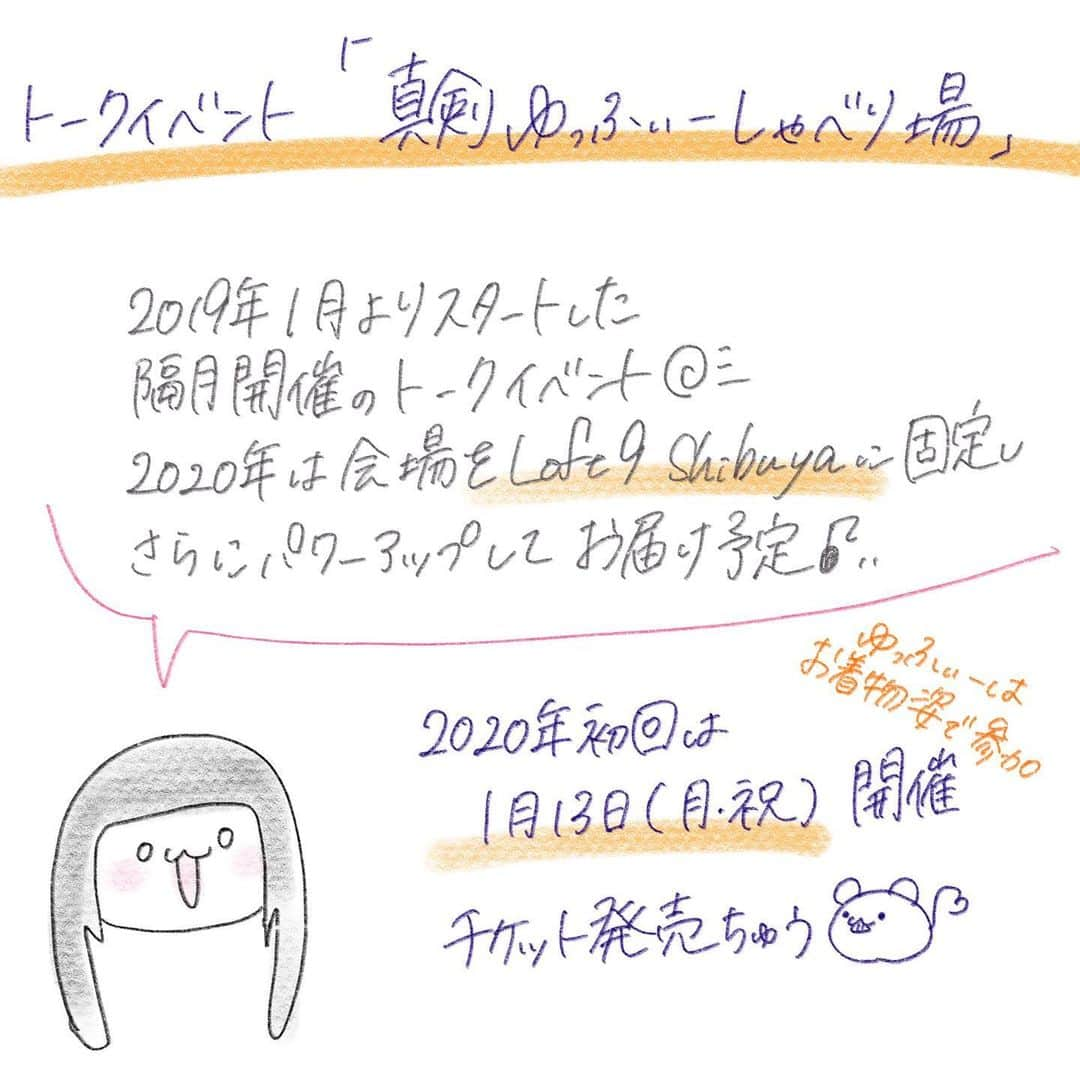 トークイベント「真剣ゆっふぃーしゃべり場」
2019年1月よりスタートした
隔月開催のトークイベント@三
2020年は会場をLoft9 Shibuyaに固定し
さらにパワーアップしてお届け予定♪..
ゆっふぃーは
お着物姿で参加
2020年初回は
1月13日(月・祝)開催
チケット発売ちゅう